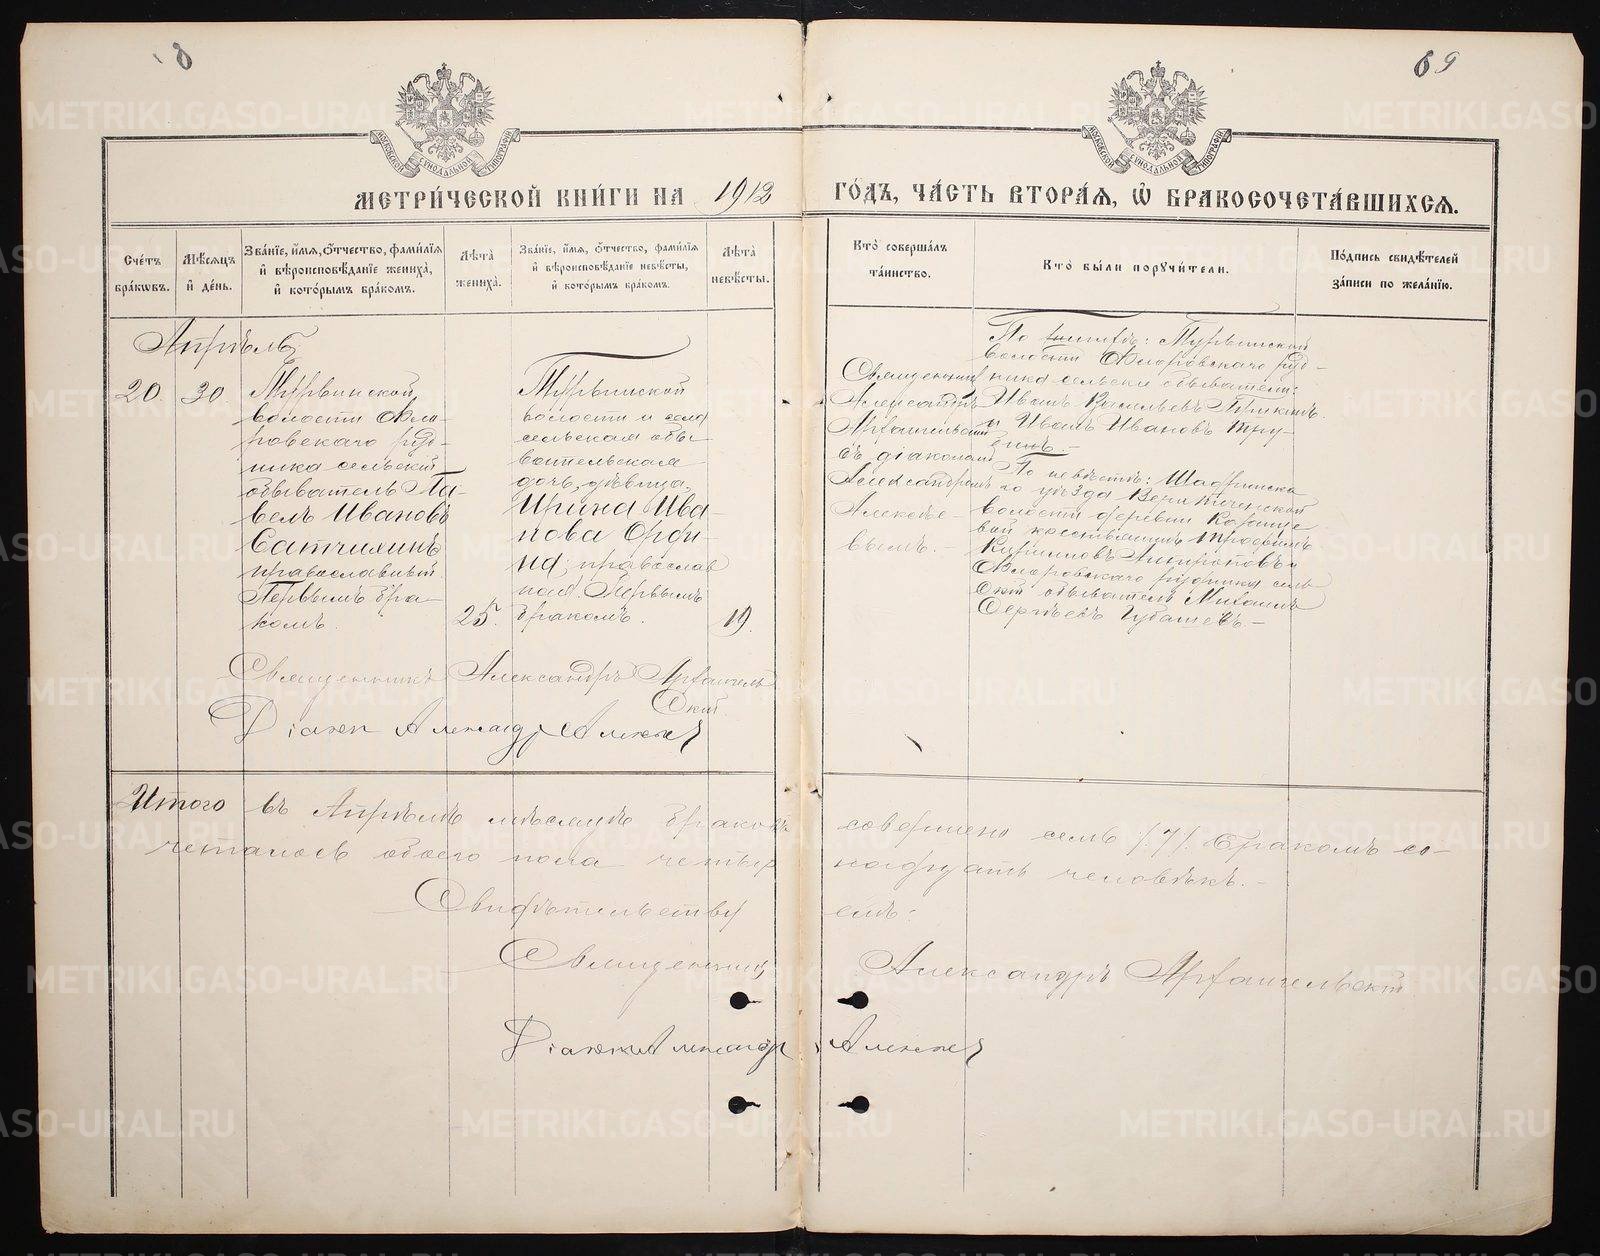 69
МЕТРИ́ЧЕСКОЙ КНИ́ГИ НА 1912 ГО́ДЪ, ЧА́СТЬ ВТОРА́Ѧ, Ѽ БРАКОСОЧЕТА́ВШИХСѦ.
Сче́тъ бра́кѡвъ.
Мѣ́сѧцъ и҆ де́нь.
Зва́нїе, и҆́мѧ, ѻ҆́тчество, фами́лїѧ и҆ вѣроисповѣ́данїе жениха̀, и҆ кото́рымъ бра́комъ.
Лѣта̀ жениха̀.
Зва́нїе, и҆́мѧ, ѻ҆́тчество, фами́лїѧ и҆ вѣроисповѣ́данїе невѣ́сты, и҆ кото́рымъ бра́комъ.
Лѣта̀ невѣ́сты.
Кто̀ соверша́лъ та́инство.
Кто̀ бы́ли порꙋчи́тели.
По́дпись свидѣ́телей за́писи по жела́нїю.
Апрѣль
20.
30.
волости
ровскаго руд-
ника сельскій
обыватель Па-
велъ Ивановъ
Сатчихинъ
православный.
Первымъ бра-
комъ.
25.
волости и села
сельская обы-
вательская
дочь, дѣвица,
Ирина Ива-
нова
православ
ная. Первымъ
бракомъ.
19.
Священникъ
Александръ
Архангельскій
съ діакономъ
Александромъ
Алексѣе-
вымъ.-
По
волости
ника сельскіе обыватели:
Иванъ Васильевъ
и Иванъ Ивановъ
По невѣстѣ: Шадринска
го уѣзда
волости деревни
вой крестьянинъ
Кирилловъ
рудника сель
скій обыватель Михаилъ
Сергѣевъ
Священникъ Александръ Архангель
скій.
Діаконъ Александръ Алексѣевъ
Итого въ Апрѣлѣ мѣсяцѣ браковъ совершено семь /.7/. Бракомъ со-
четалось обоего пола четыр надцать человѣкъ.-
Свидѣтельству емъ:
Священникъ Александръ Архангельскій
Діаконъ Александръ Алексѣевъ
METRIKI.GASO-URAL.RU